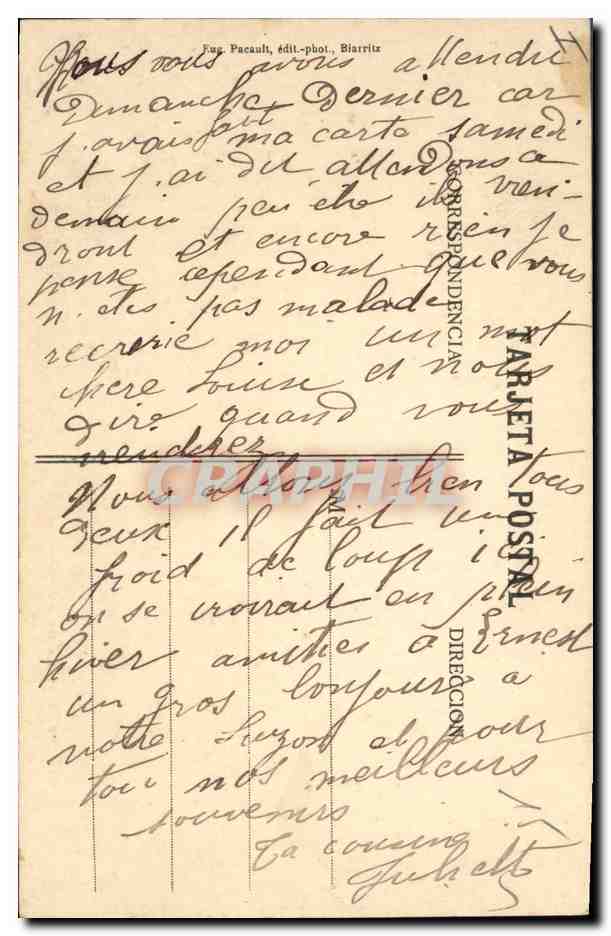 Eug. Pacault, édit.-phot., Biarritz
Nous vous avons attendu
Dimanche Dernier car
j'avais fait ma carte samedi
et j'ai dit attendons a
demain peu etre ils vien-
dront et encore rien je
pense cependant que vous
n'etes pas malade
recrerie moi un mot
chere Louise et nous
dire quand vous
viendrez
Nous allons bien tous
deux il fait un
froid de loup ici
on se croirait en plein
hiver amities a Ernest
un gros bonjour a
votre Suzon et pour
toi nos meilleurs
souvenirs
Ta cousine
Juliette
CORRESPONDENCIA
TARJETA POSTAL
DIRECCION
M
CPAPHIL